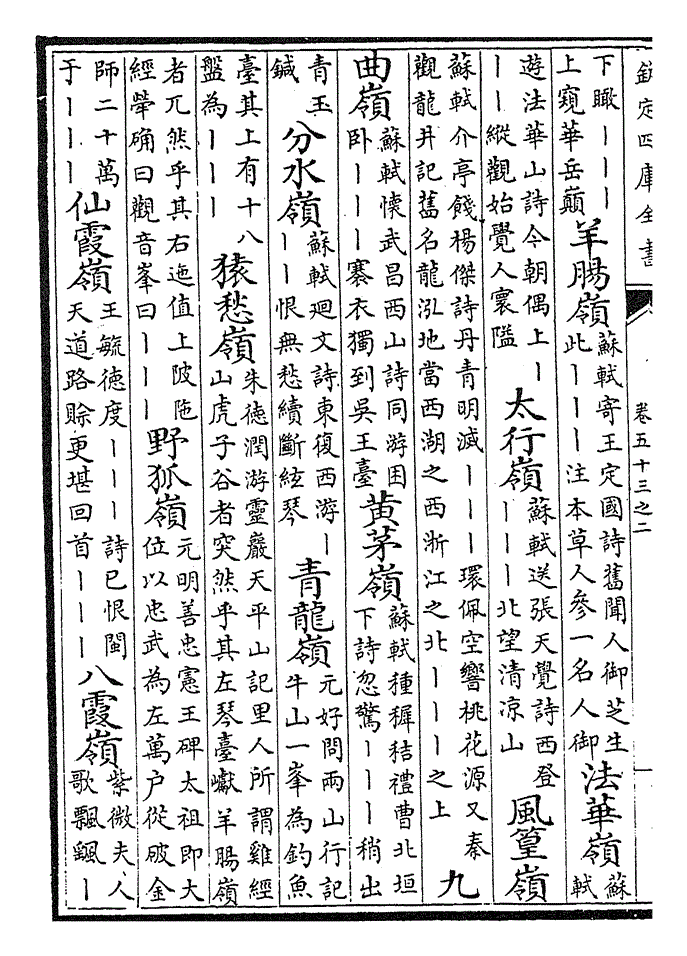 欽定四庫全書
卷五十三之二
下瞰｜｜｜
上窺華岳巔
羊腸嶺
蘇軾寄王定國詩舊聞人御芝生
此｜｜｜注本草人參一名人御
法華嶺
蘇
軾
遊法華山詩今朝偶上｜
｜｜縱觀始覺人寰隘
太行嶺
蘇軾送張天覺詩西登
｜｜｜北望清凉山
風篁嶺
蘇軾介亭餞楊傑詩丹青明滅｜｜｜環佩空響桃花源又秦
觀龍井記舊名龍泓地當西湖之西浙江之北｜｜｜之上
九
曲嶺
蘇軾懷武昌西山詩同游困
卧｜｜褰衣獨到吳王臺
黄茅嶺
蘇軾種穉秸禮曹北垣
下詩忽驚｜｜｜稍出
青玉
鍼
分水嶺
蘇軾廻文詩東復西游｜
｜｜恨無愁續斷絃琴
青龍嶺
元好問兩山行記
牛山一峯為釣魚
臺其上有十八
盤為｜｜｜
猿愁嶺
朱德潤游靈巖天平山記里人所謂雞經
山虎子谷者突然乎其左琴臺巘羊腸嶺
者兀然乎其右迤值上陂陁
經犖确曰觀音峯曰｜｜｜
野狐嶺
元明善忠憲王碑太祖即大
位以忠武為左萬户從破金
師二十萬
于｜｜｜
仙霞嶺
王毓德度｜｜｜詩已恨閩
天道路賒更堪回首｜｜｜
八霞嶺
紫微夫人
歌飄颻｜